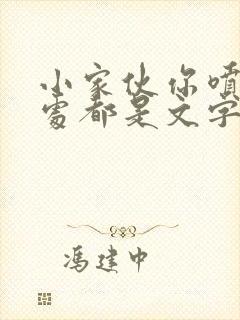 小家伙你噴
處都是文字
馮建中